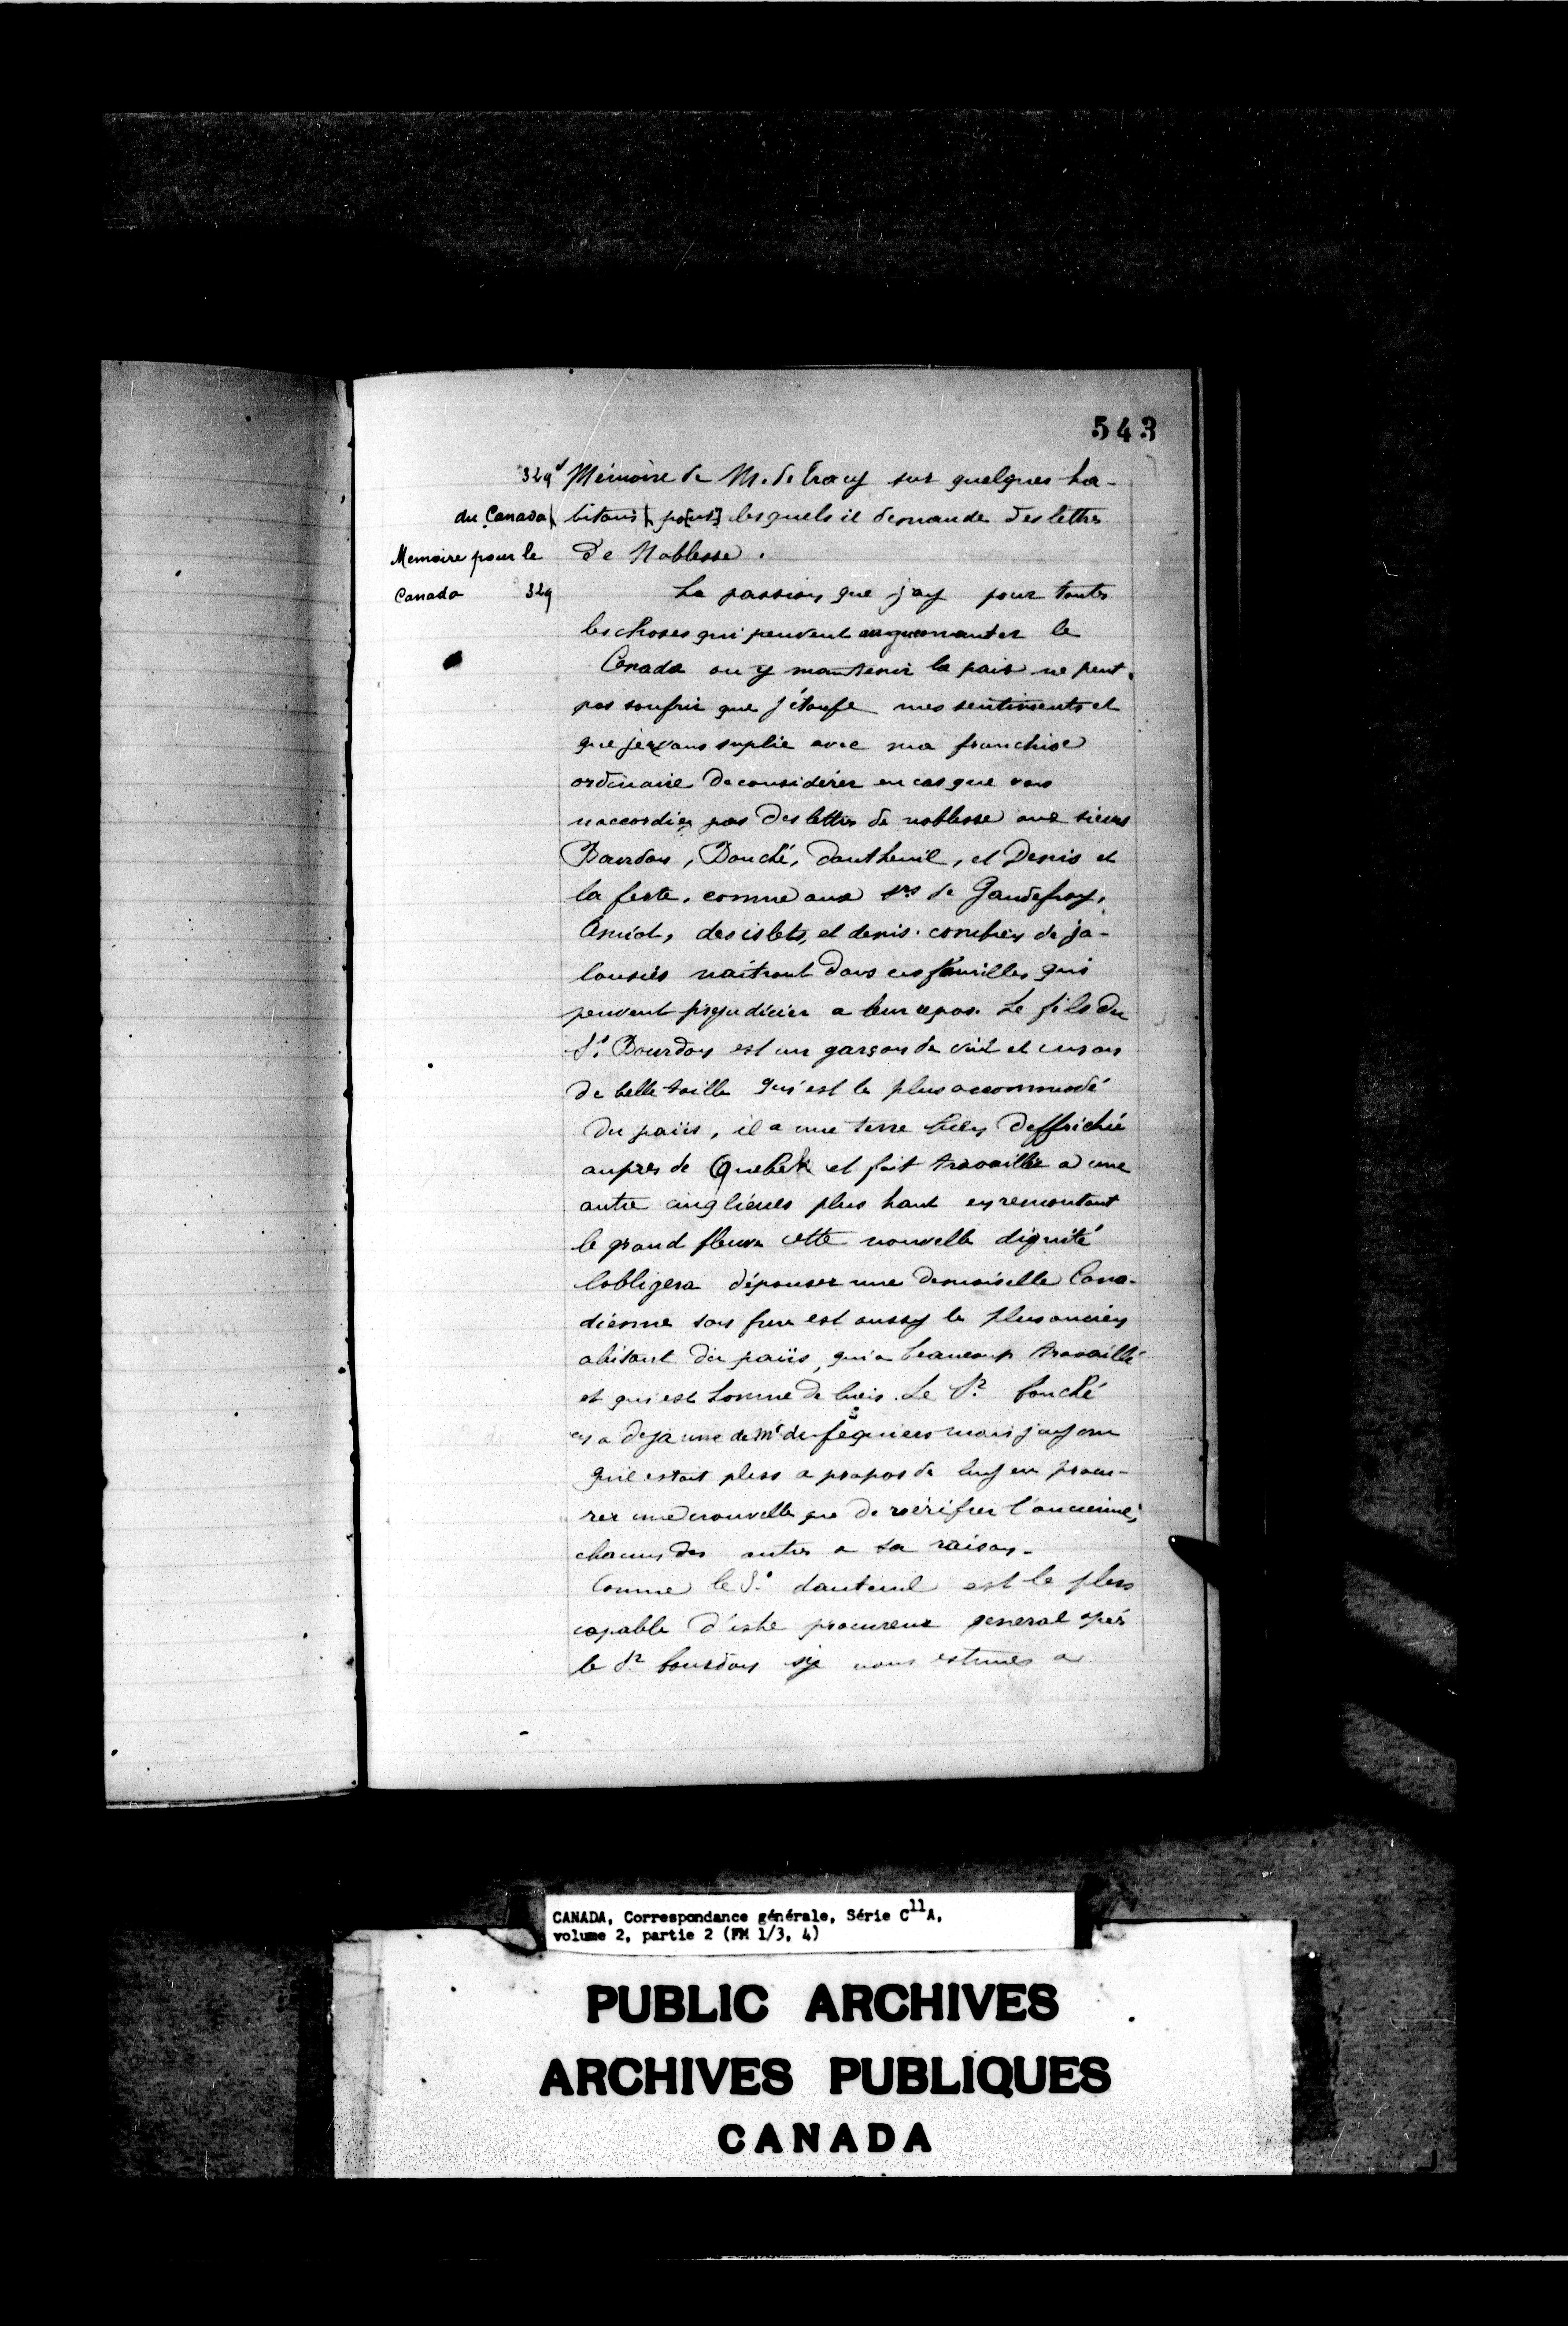 543
329v Mémoire de M. de Tracy sur quelques ha-
du Canada bitans po[ur] lesquels il demande des lettres
Memoire pour le de Noblesse.
Canada 329 La passion que j'ay pour toutes
les choses qui peuvent augmanter le
Canada ou y maintenir la paix ne peut
pas soufrir que j'étoufe mes sentiments et
que je vous suplie avec ma franchise
ordinaire de considérer en cas que vous
naccordiez pas des lettres de noblesse aux sieurs
Bourdon, Bouché, dautheuil, et Denis et
la ferte, comme aux srs de Gaudefroy,
Amiot, des islets, et denis. combien de ja-
lousies naitront dans ces familles qui
peuvent prejudicier a leur repos. Le fils du
Sr. Bourdon est un garson de vint et un ans
de belle taille qui est le plus accommodé
du païis, il a une terre bien deffrichée
aupres de Quebek et fait travailler a une
autre cinq lieues plus haut en remontant
le grand fleuve cette nouvelle dignité
lobligera dépouser une demoiselle Cana-
dienne son frere est aussy le plus ancien
abitant du païis, qui a beaucoup travaillé
et qui est homme de biens. Le Sr. bouché
en a deja une de Mr de fequieres mais j'ay cru
quil estoit plus a propos de luy en procu-
rer une nouvelle que de vérifier l'ancienne,
chacun des autres a sa raison.
Comme le Sr. dauteuil est le plus
capable d'estre procureur general après
le Sr. bourdon sy vous estimes a
CANADA, Correspondance générale, Série C11A,
volume 2, partie 2 (FM 1/3, 4)
PUBLIC ARCHIVES
ARCHIVES PUBLIQUES
CANADA